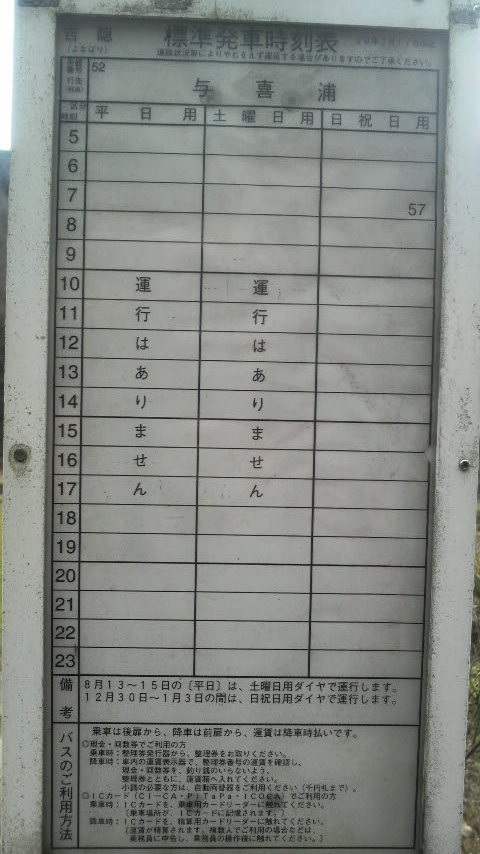 吉隠 標準発車時刻表
(よなばり) 道路状況等によりやむをえず遅延する場合がありますのでご了承ください。
52
行先 与喜浦
区分 平日用 土曜日用 日祝日用
時刻
5
6
7 57
8
9
10
11
12
13
14
15
16
17
18
19
20
21
22
23
運行はありません
運行はありません
備考
8月13〜15日の〔平日〕は、土曜日用ダイヤで運行します。
12月30日〜1月3日の間は、日祝日用ダイヤで運行します。
バスのご利用方法
乗車は後扉から、降車は前扉から、運賃は降車時払いです。
◎現金・回数券でご利用の方
乗車時：整理券発行器から、整理券をお取りください。
降車時：車内の運賃表示器で、整理券番号の運賃を確認し、
現金・回数券を、釣り銭のいらないよう、
整理券とともに、運賃箱へ入れてください。
小銭の必要な方は、自動両替器をご利用ください（千円札まで）。
◎ICカード（CI-CA・PiTaPa・ICOCA）でご利用の方
乗車時：ICカードを、乗車用カードリーダーに触れてください。
〔乗車場所が、ICカードに記憶されます。〕
降車時：ICカードを、精算用カードリーダーに触れてください。
〔運賃が精算されます。複数人でご利用の場合などは、
乗務員に申告し、乗務員の操作後に触れてください。〕